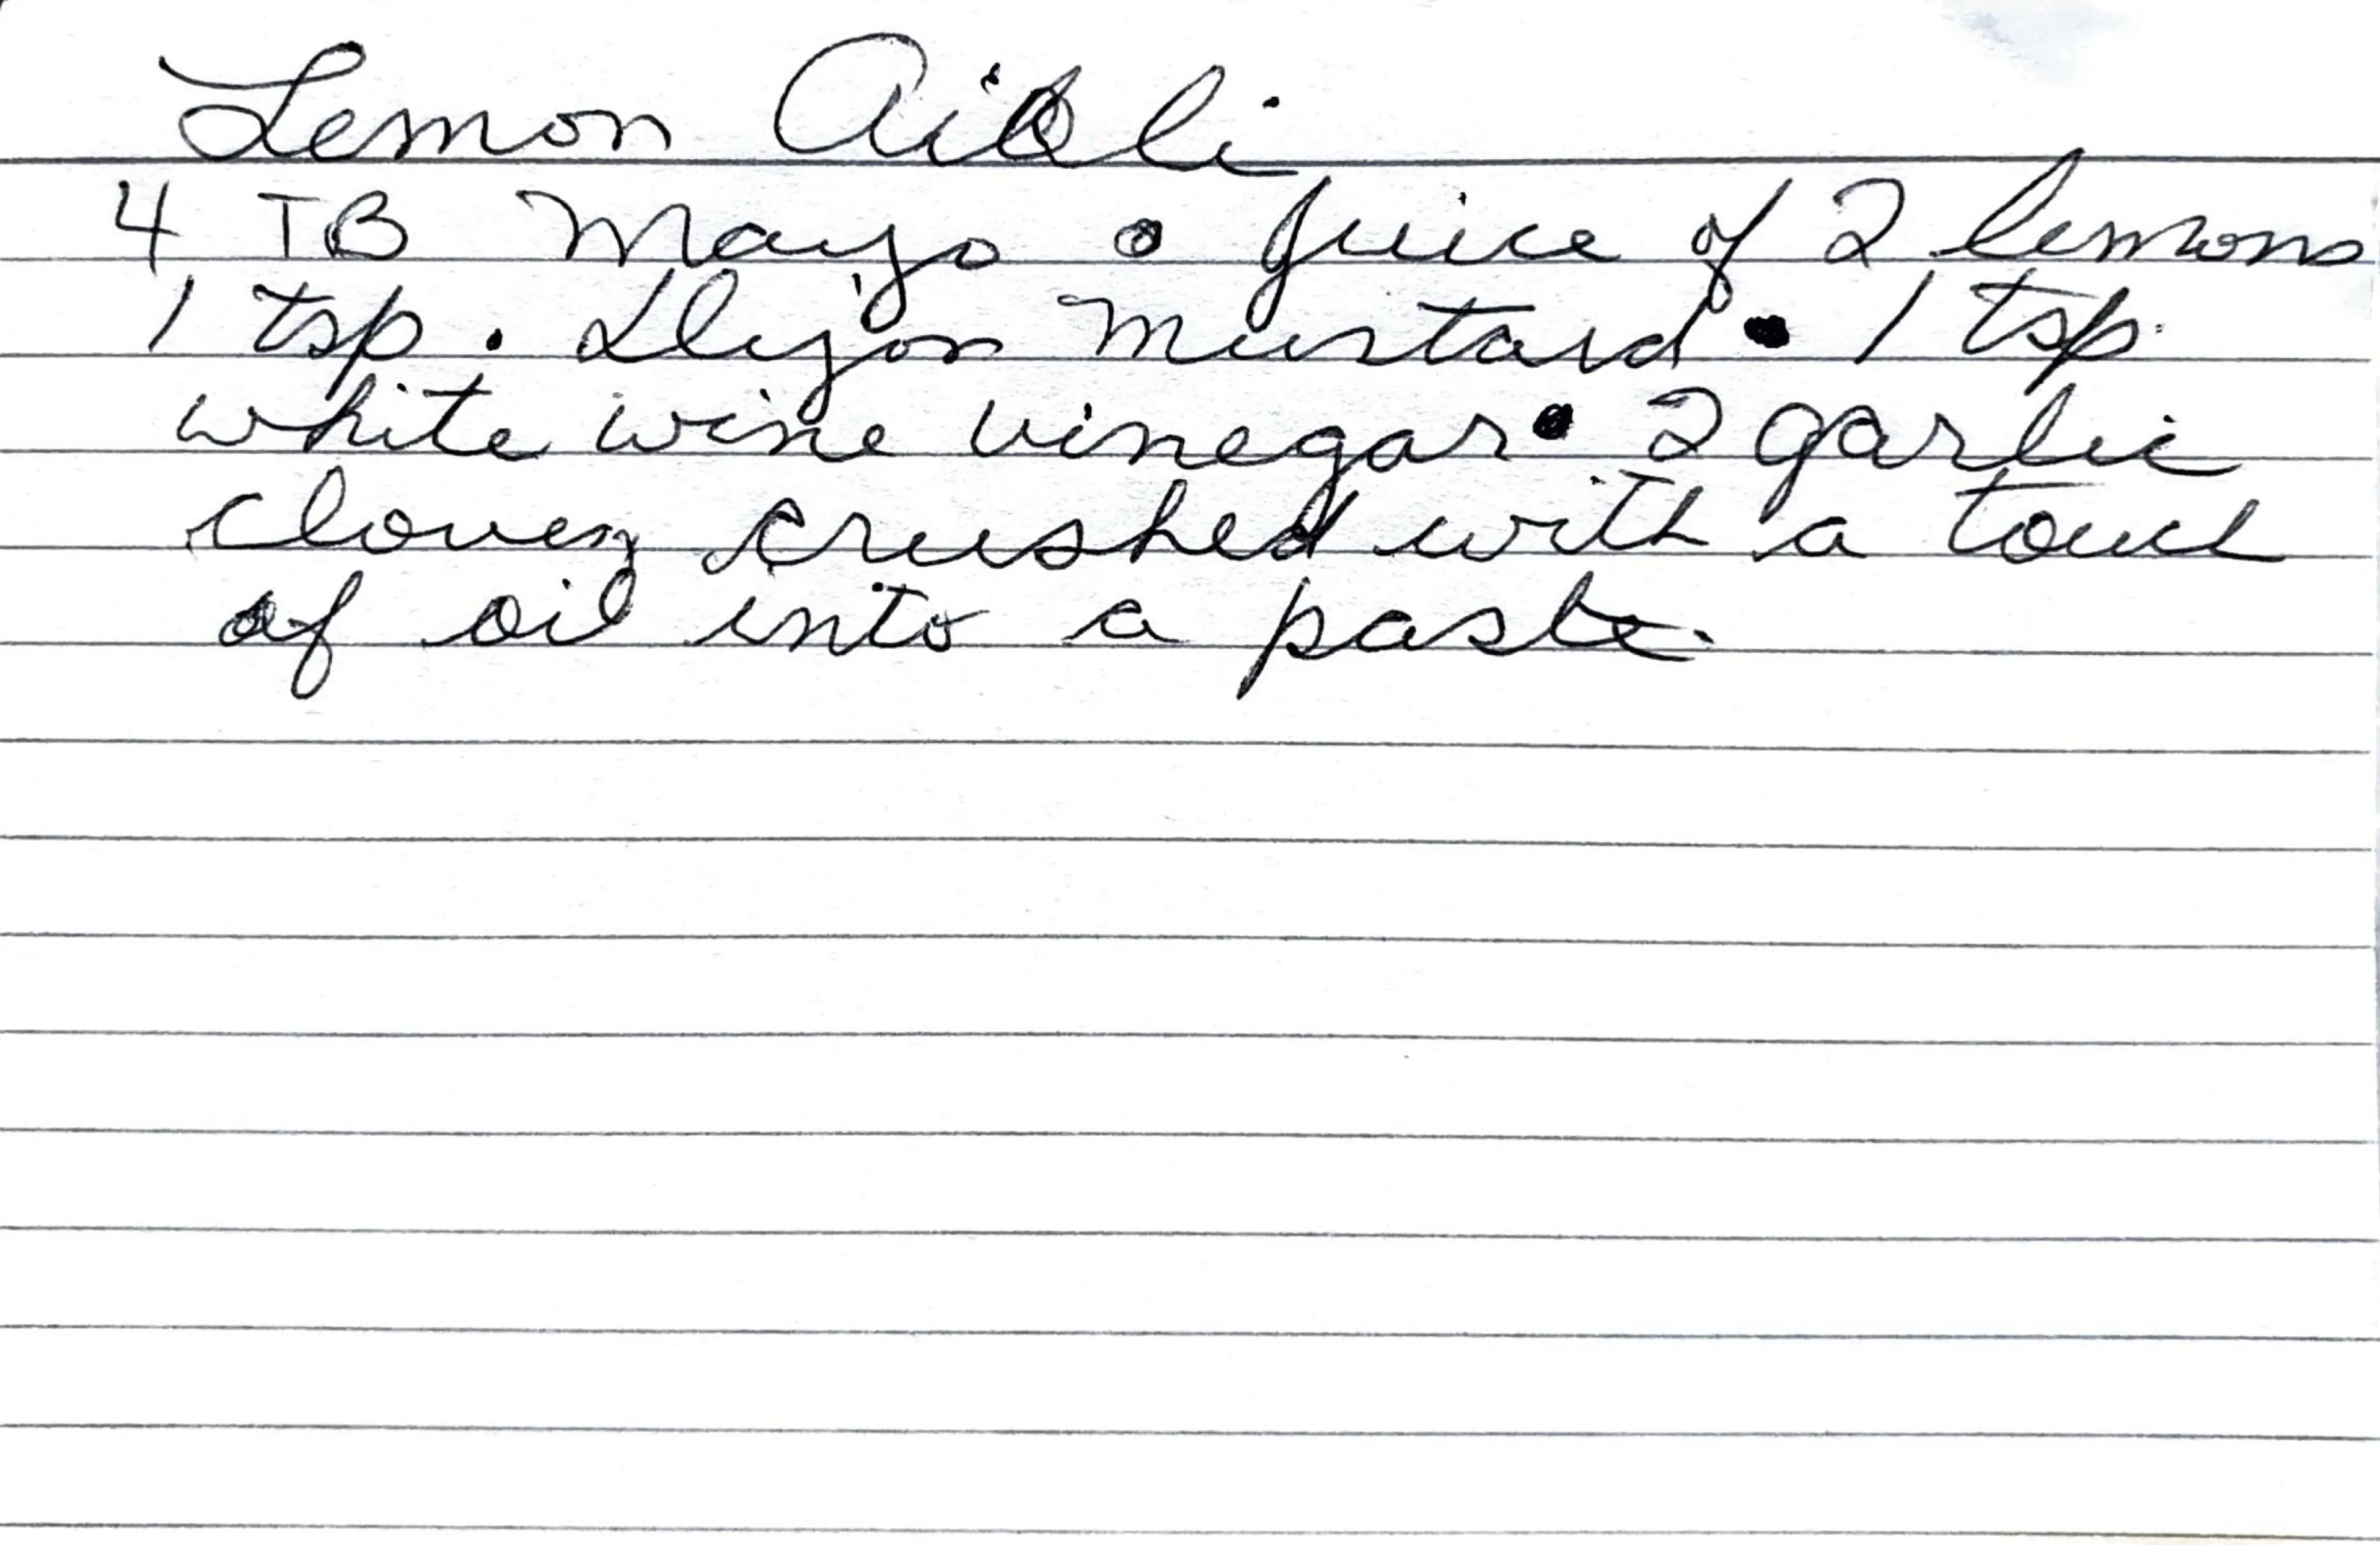 Lemon Aioli
4 TB Mayo • Juice of 2 lemons
1 tsp. Dijon Mustard • 1 tsp.
white wine vinegar • 2 garlic
cloves crushed with a touch
of oil into a paste.